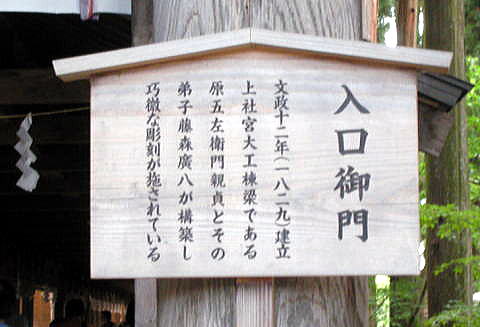 入口御門
文政十二年(一八二九)建立
上社宮大工棟梁である
原五左衛門親貞とその
弟子藤森廣八が構築し
巧微な彫刻が施されている